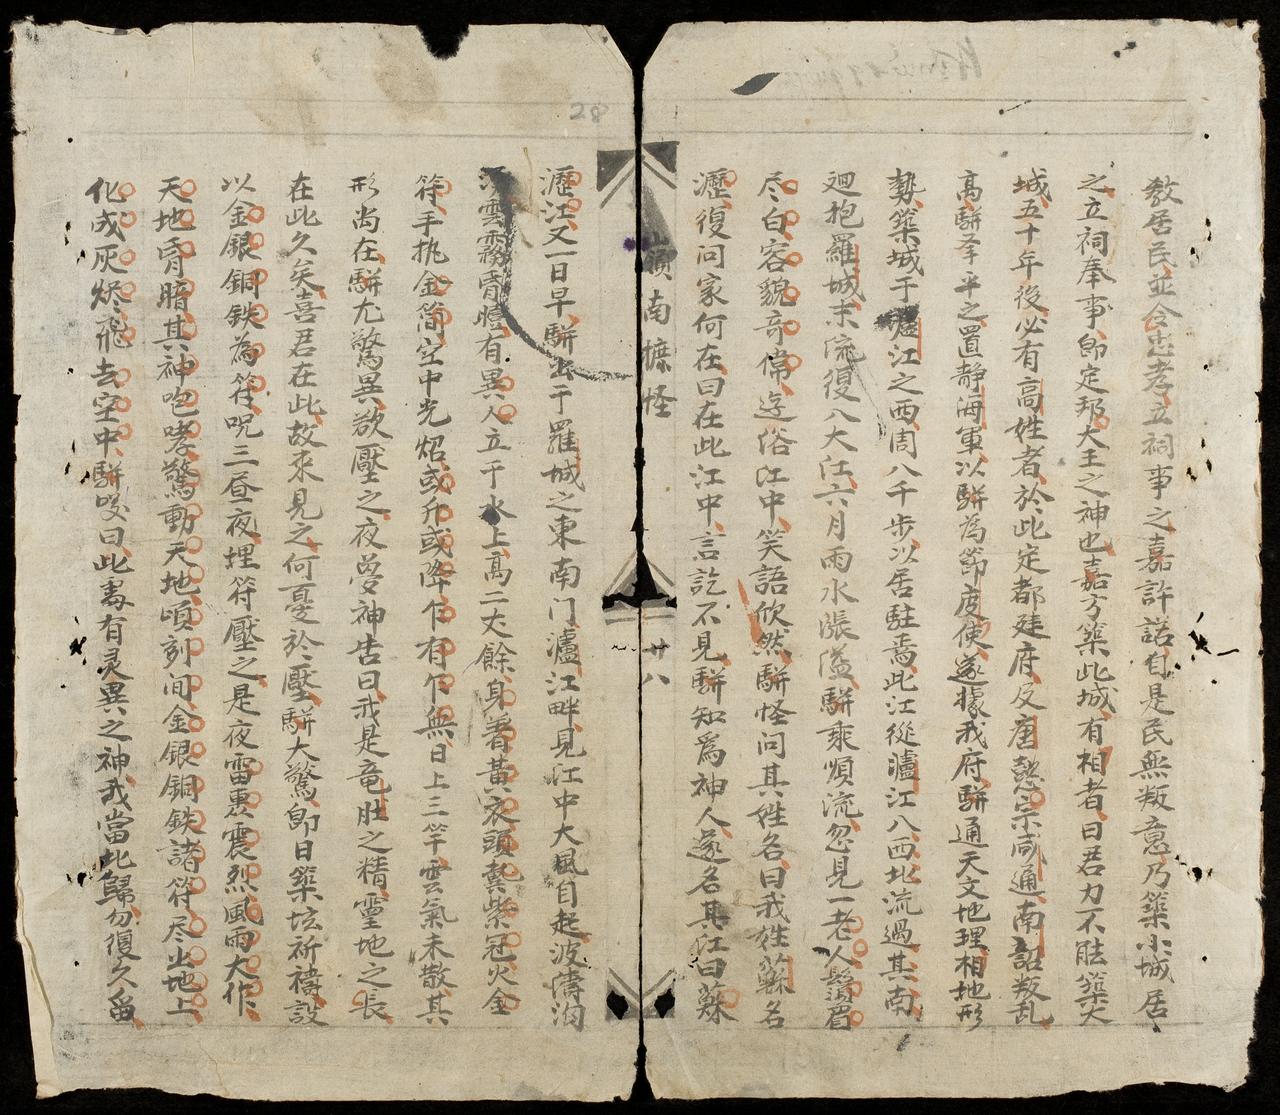 教居民並令忠孝立祠事之嘉許諾自是民無叛意乃築小城居
之立祠奉事即定邦大王之神也嘉方築此城有相者曰君力不能築大
城五十年後必有高姓者於此定都建府反唐懿宗咸通南詔叛乱
高駢率平之置静海軍以駢為節度使遂據我府駢通天文地理相地形
勢築城于瀘江之西周八千步以居駐焉此江從瀘江入西北流過其南
迴抱羅城末流復入大江六月雨水漲溢駢乘順流忽見一老人鬚眉
尽白容貌奇偉逰俗江中笑語欣然駢怪问其姓名曰我姓蘇名
瀝復问家何在曰在此江中言訖不見駢知為神人遂名其江曰蘇
嶺南摭怪
廿八
28
瀝江又一日早駢出于羅城之東南门瀘江畔見江中大風自起波濤洶
雲霧昏曀有異人立于水上高二丈餘身着黃衣頭戴紫冠火金
符手执金簡空中光炤或升或降乍有乍無日上三竿雲氣未散其
形尚在駢尤驚異欲壓之夜夢神告曰我是竜肚之精靈地之長
在此久矣喜君在此故來見之何憂於壓駢大驚即日築坛祈禱設
以金銀銅铁為符呪三昼夜埋符壓之是夜雷震烈風雨大作
天地昏暗其神咆哮驚動天地頃刻间金銀銅鉄諸符尽出地上
化成灰烬飛去空中駢嘆曰此處有灵異之神我當北歸勿復久畄